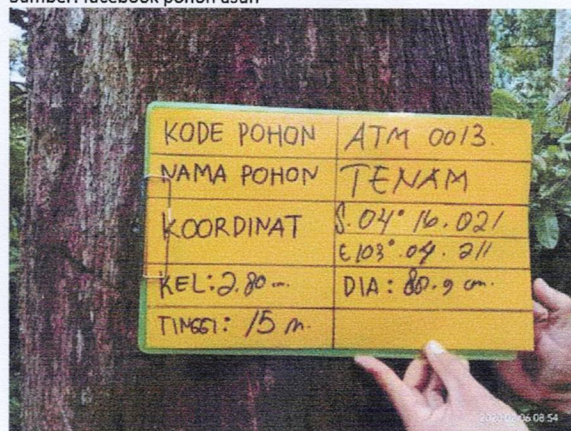 Sumber: facebook pohon asuh
KODE POHON ATM 0013.
NAMA POHON TENAM
KOORDINAT S. 04° 16. 021
E 103°. 04. 211
KEL: 2.80 m. DIA: 8.9 cm.
TINGGI: 15 m.
2020-02-06 08:54